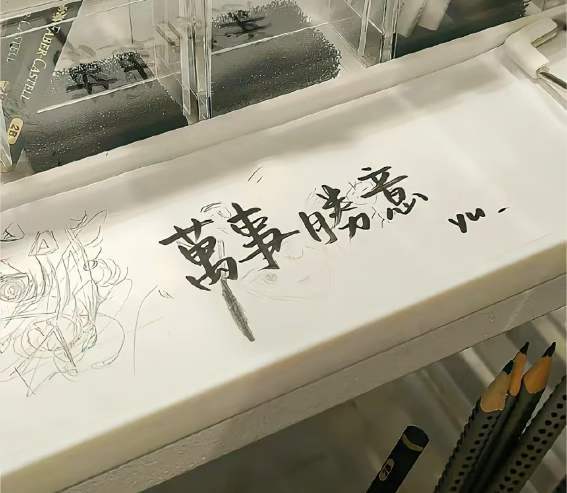 FABER-CASTELL
2B
萬事勝意
yu.